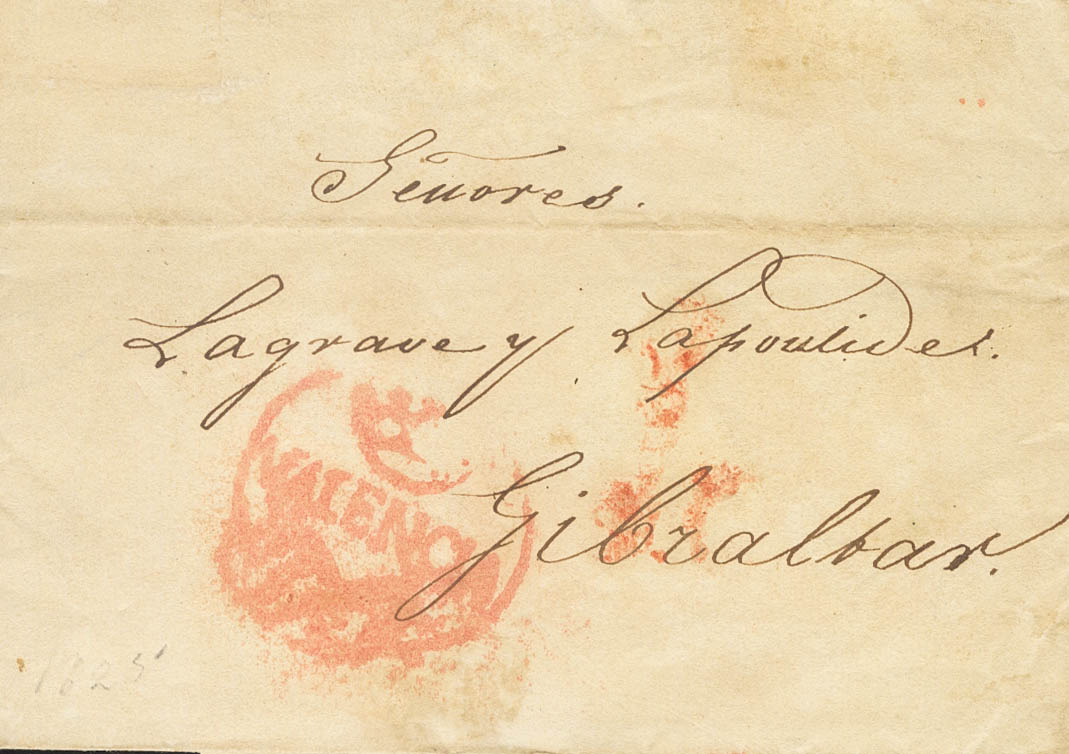 Señores.
Lagrave y Lapoulides.
VALENCIA
Gibraltar.
1825